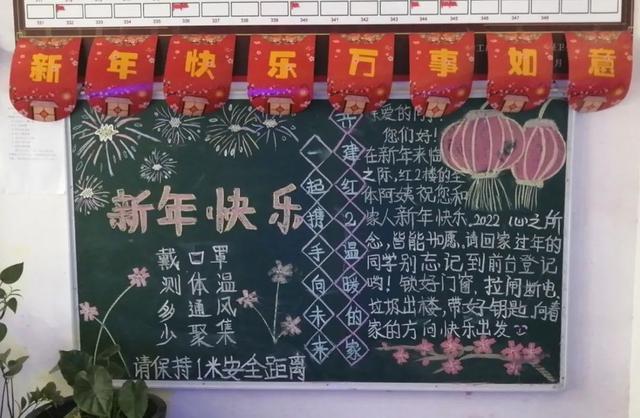 新年快乐万事如意
新年快乐
戴口罩
测体温
多通风
少聚集
请保持1米安全距离
一起携手向未来
建红2温暖的家
亲爱的同
您们好！
在新年来临
之际，红2楼的全
体阿姨祝您和
家人新年快乐，2022 心之所
念，皆能如愿，请回家过年的
同学别忘记到前台登记
哟！锁好门窗，拉闸断电，
垃圾出楼，带好钥匙，向着
家的方向快乐出发